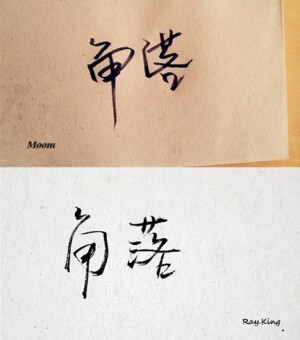 角落
Moom
角落
Ray.King